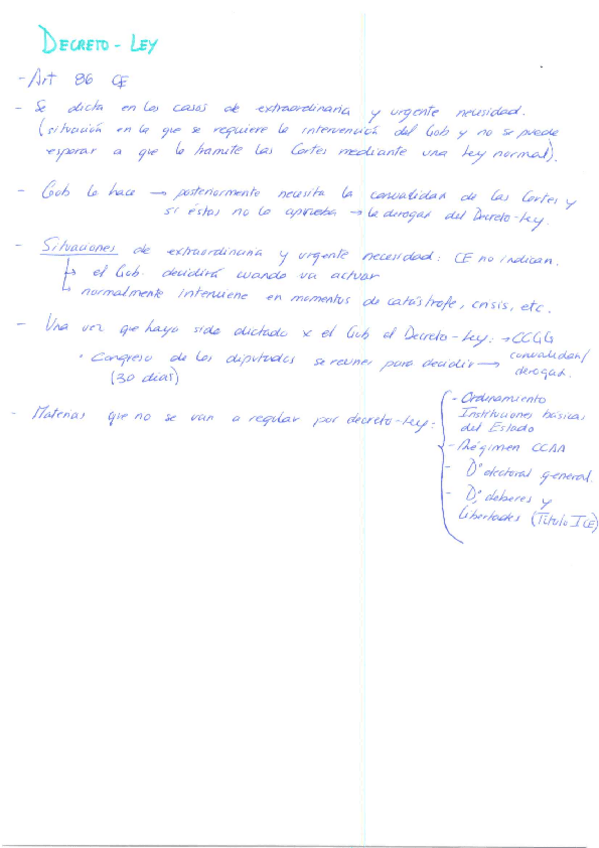 DECRETO - LEY
- Art 86 CE
- Se dicta en los casos de extraordinaria y urgente necesidad.
(situación en la que se requiere la intervención del Gob y no se puede
esperar a que lo tramite las Cortes mediante una Ley normal).
- Gob lo hace → posteriormente necesita la convalidad de las Cortes y
si éstas no lo aprueba → la derogan del Decreto-Ley.
- Situaciones de extraordinaria y urgente necesidad: CE no indican.
↳ el Gob. decidirá cuando va actuar
↳ normalmente interviene en momentos de catástrofe, crisis, etc.
- Una vez que haya sido dictado x el Gob el Decreto-Ley: → CCGG
• Congreso de los diputados se reunen para decidir → convalidad/
(30 días) derogan.
- Materias que no se van a regular por decreto-ley:
- Ordenamiento
Instituciones básicas
del Estado
- Régimen CCAA
- Dº electoral general.
- Dº, deberes y
libertades (Título I CE)